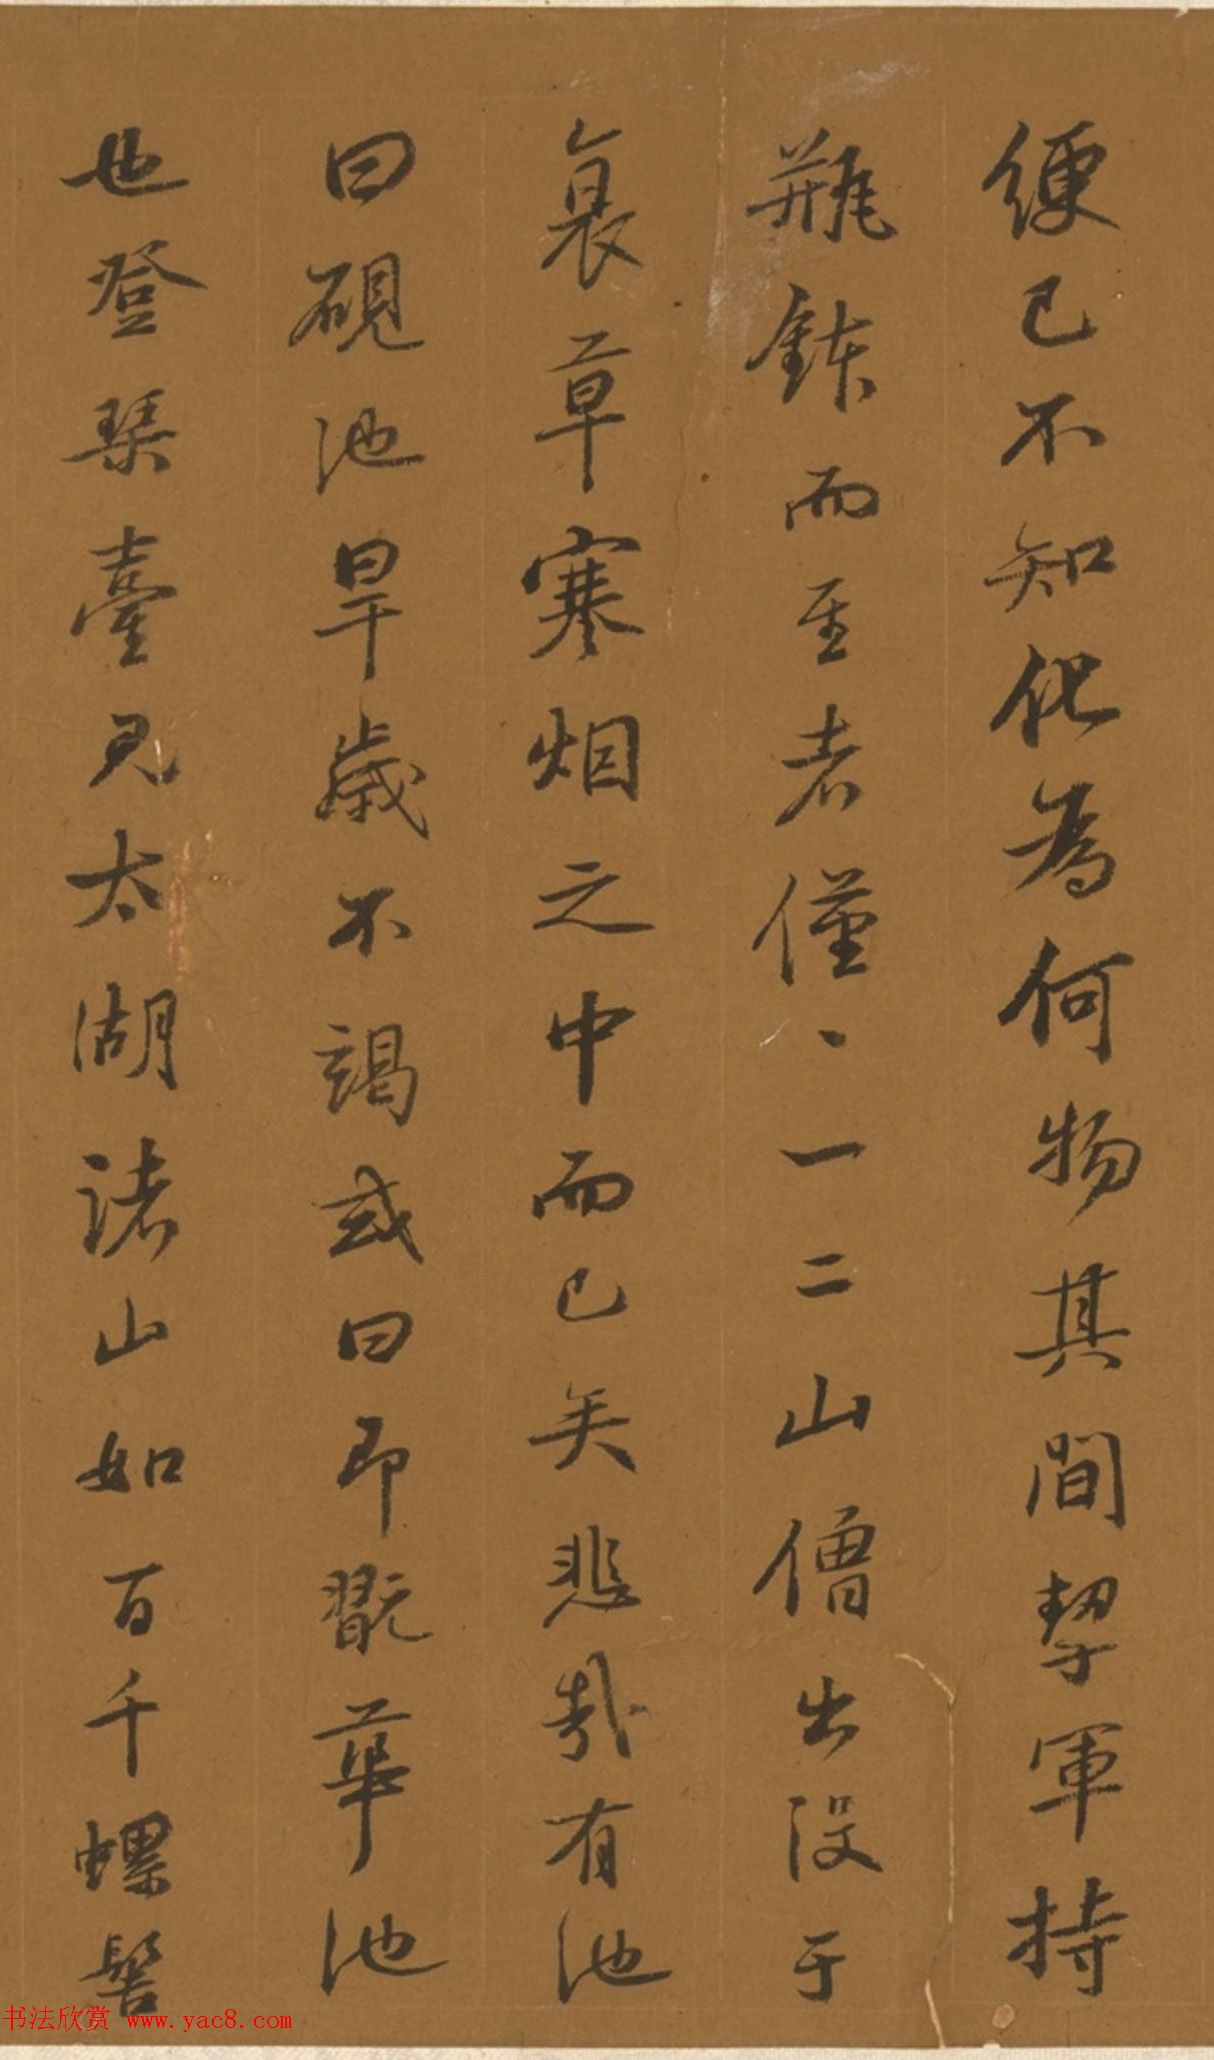 緶已不知化為何物其間挈軍持
瓶鉢而至者僅、一二山僧出没于
衰草寒烟之中而已矣悲哉有池
曰硯池旱歳不竭或曰即翫華池
也登琴臺見太湖諸山如百千螺髻
书法欣赏 www.yac8.com